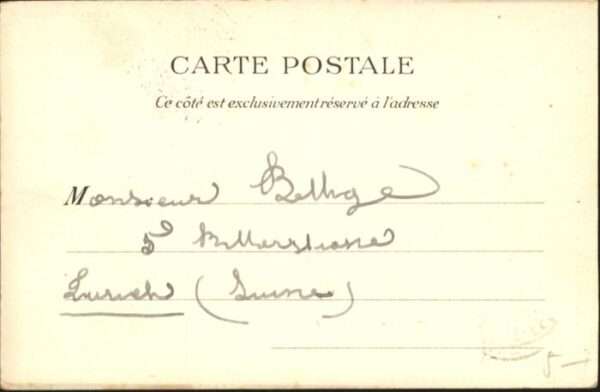 CARTE POSTALE
Ce côté est exclusivement réservé à l'adresse
Monsieur Bethge
5
Zurich (Suisse)